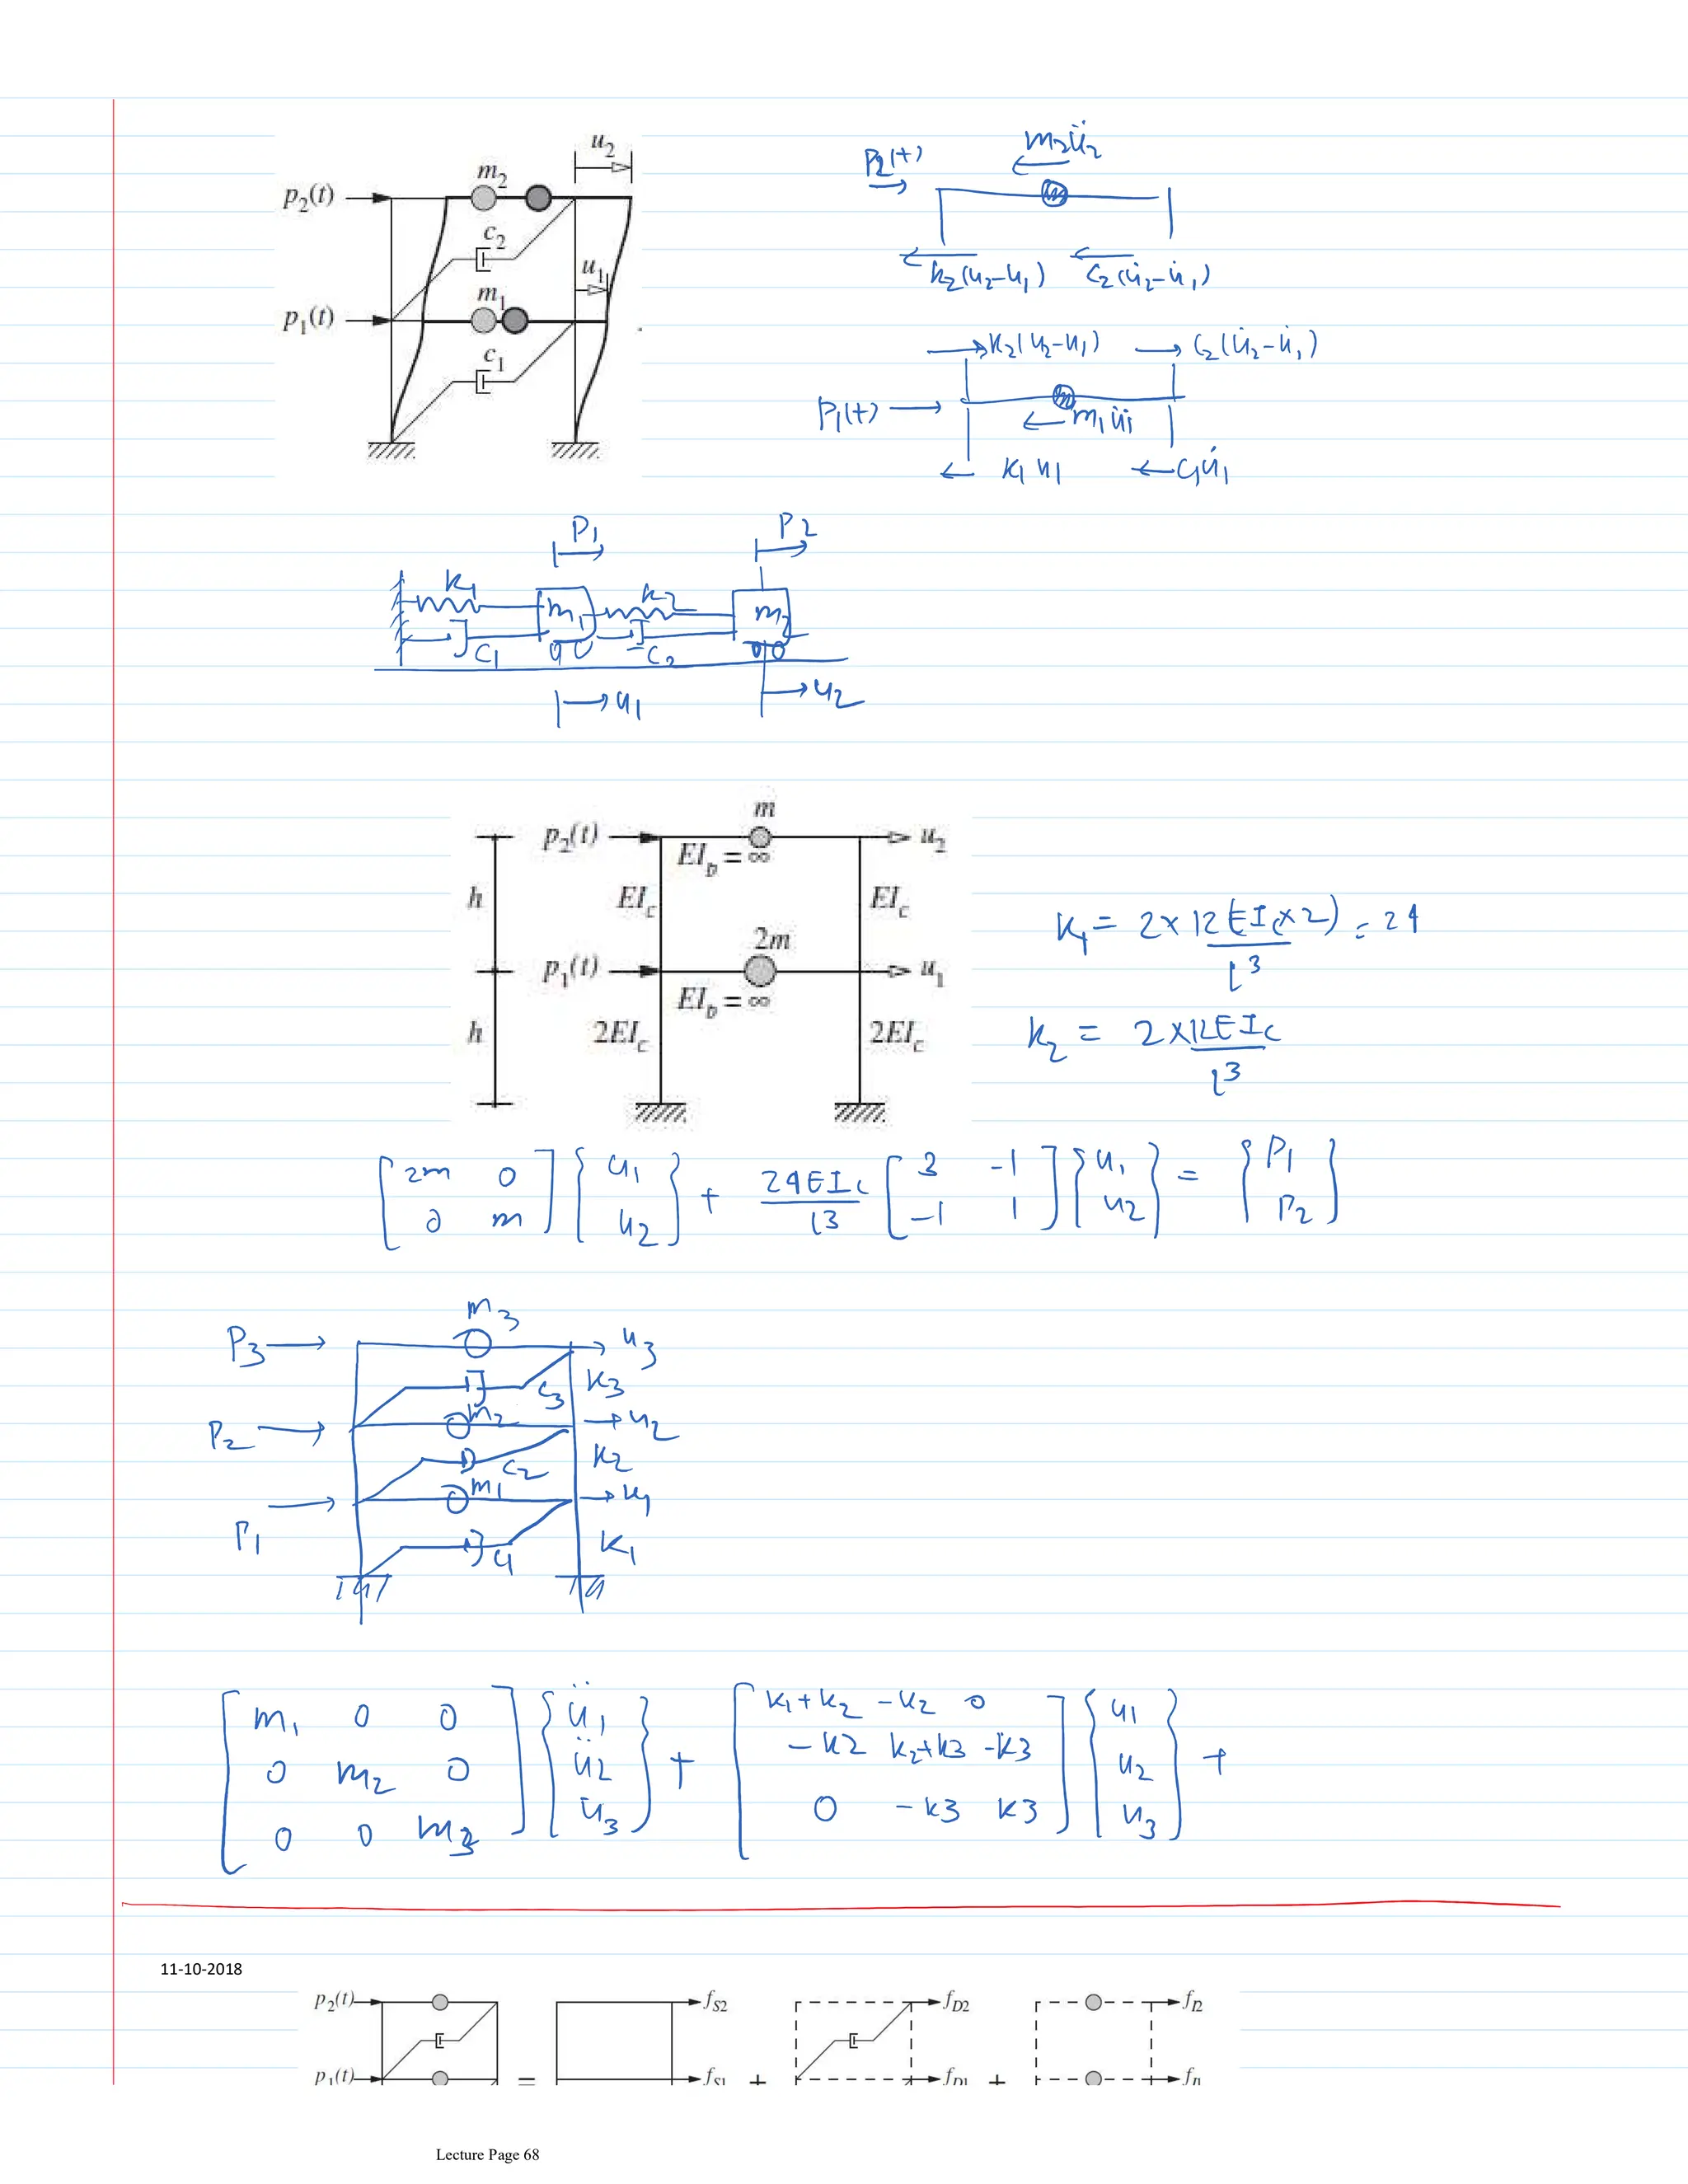 u₂
m₂
p₂(t)
c₂
u₁
m₁
p₁(t)
c₁
P₂(t)
m₂ü₂
k₂(u₂-u₁) c₂(u̇₂-u̇₁)
k₂(u₂-u₁) c₂(u̇₂-u̇₁)
P₁(t)
m₁ü₁
k₁u₁ c₁u̇₁
P₁ P₂
k₁ k₂
m₁ m₂
c₁ c₂
u₁ u₂
m
p₂(t) u₂
EI_b = ∞
h EI_c EI_c
2m
p₁(t) u₁
EI_b = ∞
h 2EI_c 2EI_c
k₁ = 2×12(EI_c×2)/l³ = 24
k₂ = 2×12EI_c/l³
[2m 0; 0 m] {u₁; u₂} + 24EI_c/l³ [3 -1; -1 1] {u₁; u₂} = {P₁; P₂}
m₃
P₃ u₃
c₃ k₃
P₂ m₂ u₂
c₂ k₂
m₁ u₁
P₁ c₁ k₁
[m₁ 0 0; 0 m₂ 0; 0 0 m₃] {ü₁; ü₂; ü₃} + [k₁+k₂ -k₂ 0; -k₂ k₂+k₃ -k₃; 0 -k₃ k₃] {u₁; u₂; u₃} +
11-10-2018
p₂(t) f_S2 f_D2 f_I2
p₁(t) = f_S1 + f_D1 + f_I1
Lecture Page 68